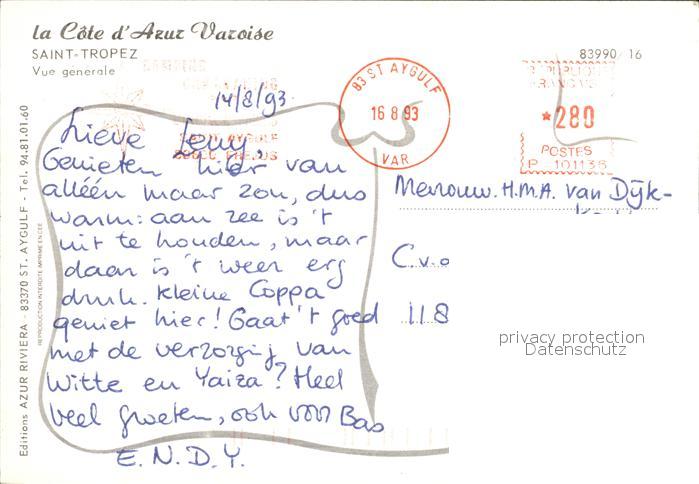 la Côte d'Azur Varoise
SAINT-TROPEZ
Vue generale
83990 16
83 ST AYGULF
16 8 93
VAR
REPUBLIQUE
FRANCAISE
*280
POSTES
P 101136
SAINT AYGULF
83600 FREJUS
14/8/93.
Lieve Leny,
Genieten hier van
alléén maar zon, dus
warm: aan zee is 't
uit te houden, maar
daar is 't weer erg
druk. Kleine Coppa
geniet hier! Gaat 't goed
met de verzorging van
Witte en Yaiza? Heel
veel groeten, ook van Bas
E.N.D.Y.
Mevrouw. H.M.A. van Dijk-
C.v.o
118
privacy protection
Datenschutz
Editions AZUR RIVIERA - 83370 ST. AYGULF - Tel. 94.81.01.60
REPRODUCTION INTERDITE IMPRIME EN CEE